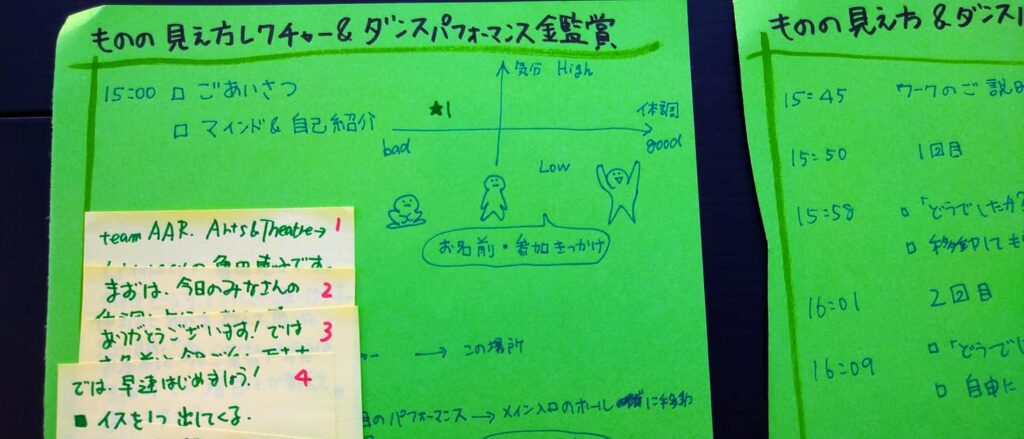 ものの見え方レクチャー&ダンスパフォーマンス鑑賞
15:00 □ ごあいさつ
□ マインド&自己紹介
気分 High
★1
体調
bad
good
Low
お名前・参加きっかけ
team AAR. Arts&Theatre→ 1
です。
まずは、今日のみなさんの 2
ありがとうございます!では 3
では、早速はじめましょう! 4
■ イスを1つ出してくる.
→ この場所
のパフォーマンス → メイン入口のホール に移動
ものの見え方&ダンス
15:45 ワークのご説明
15:50 1回目
15:58 □「どうでしたか?
□
16:01 2回目
16:09 □「どうでし
□ 自由に